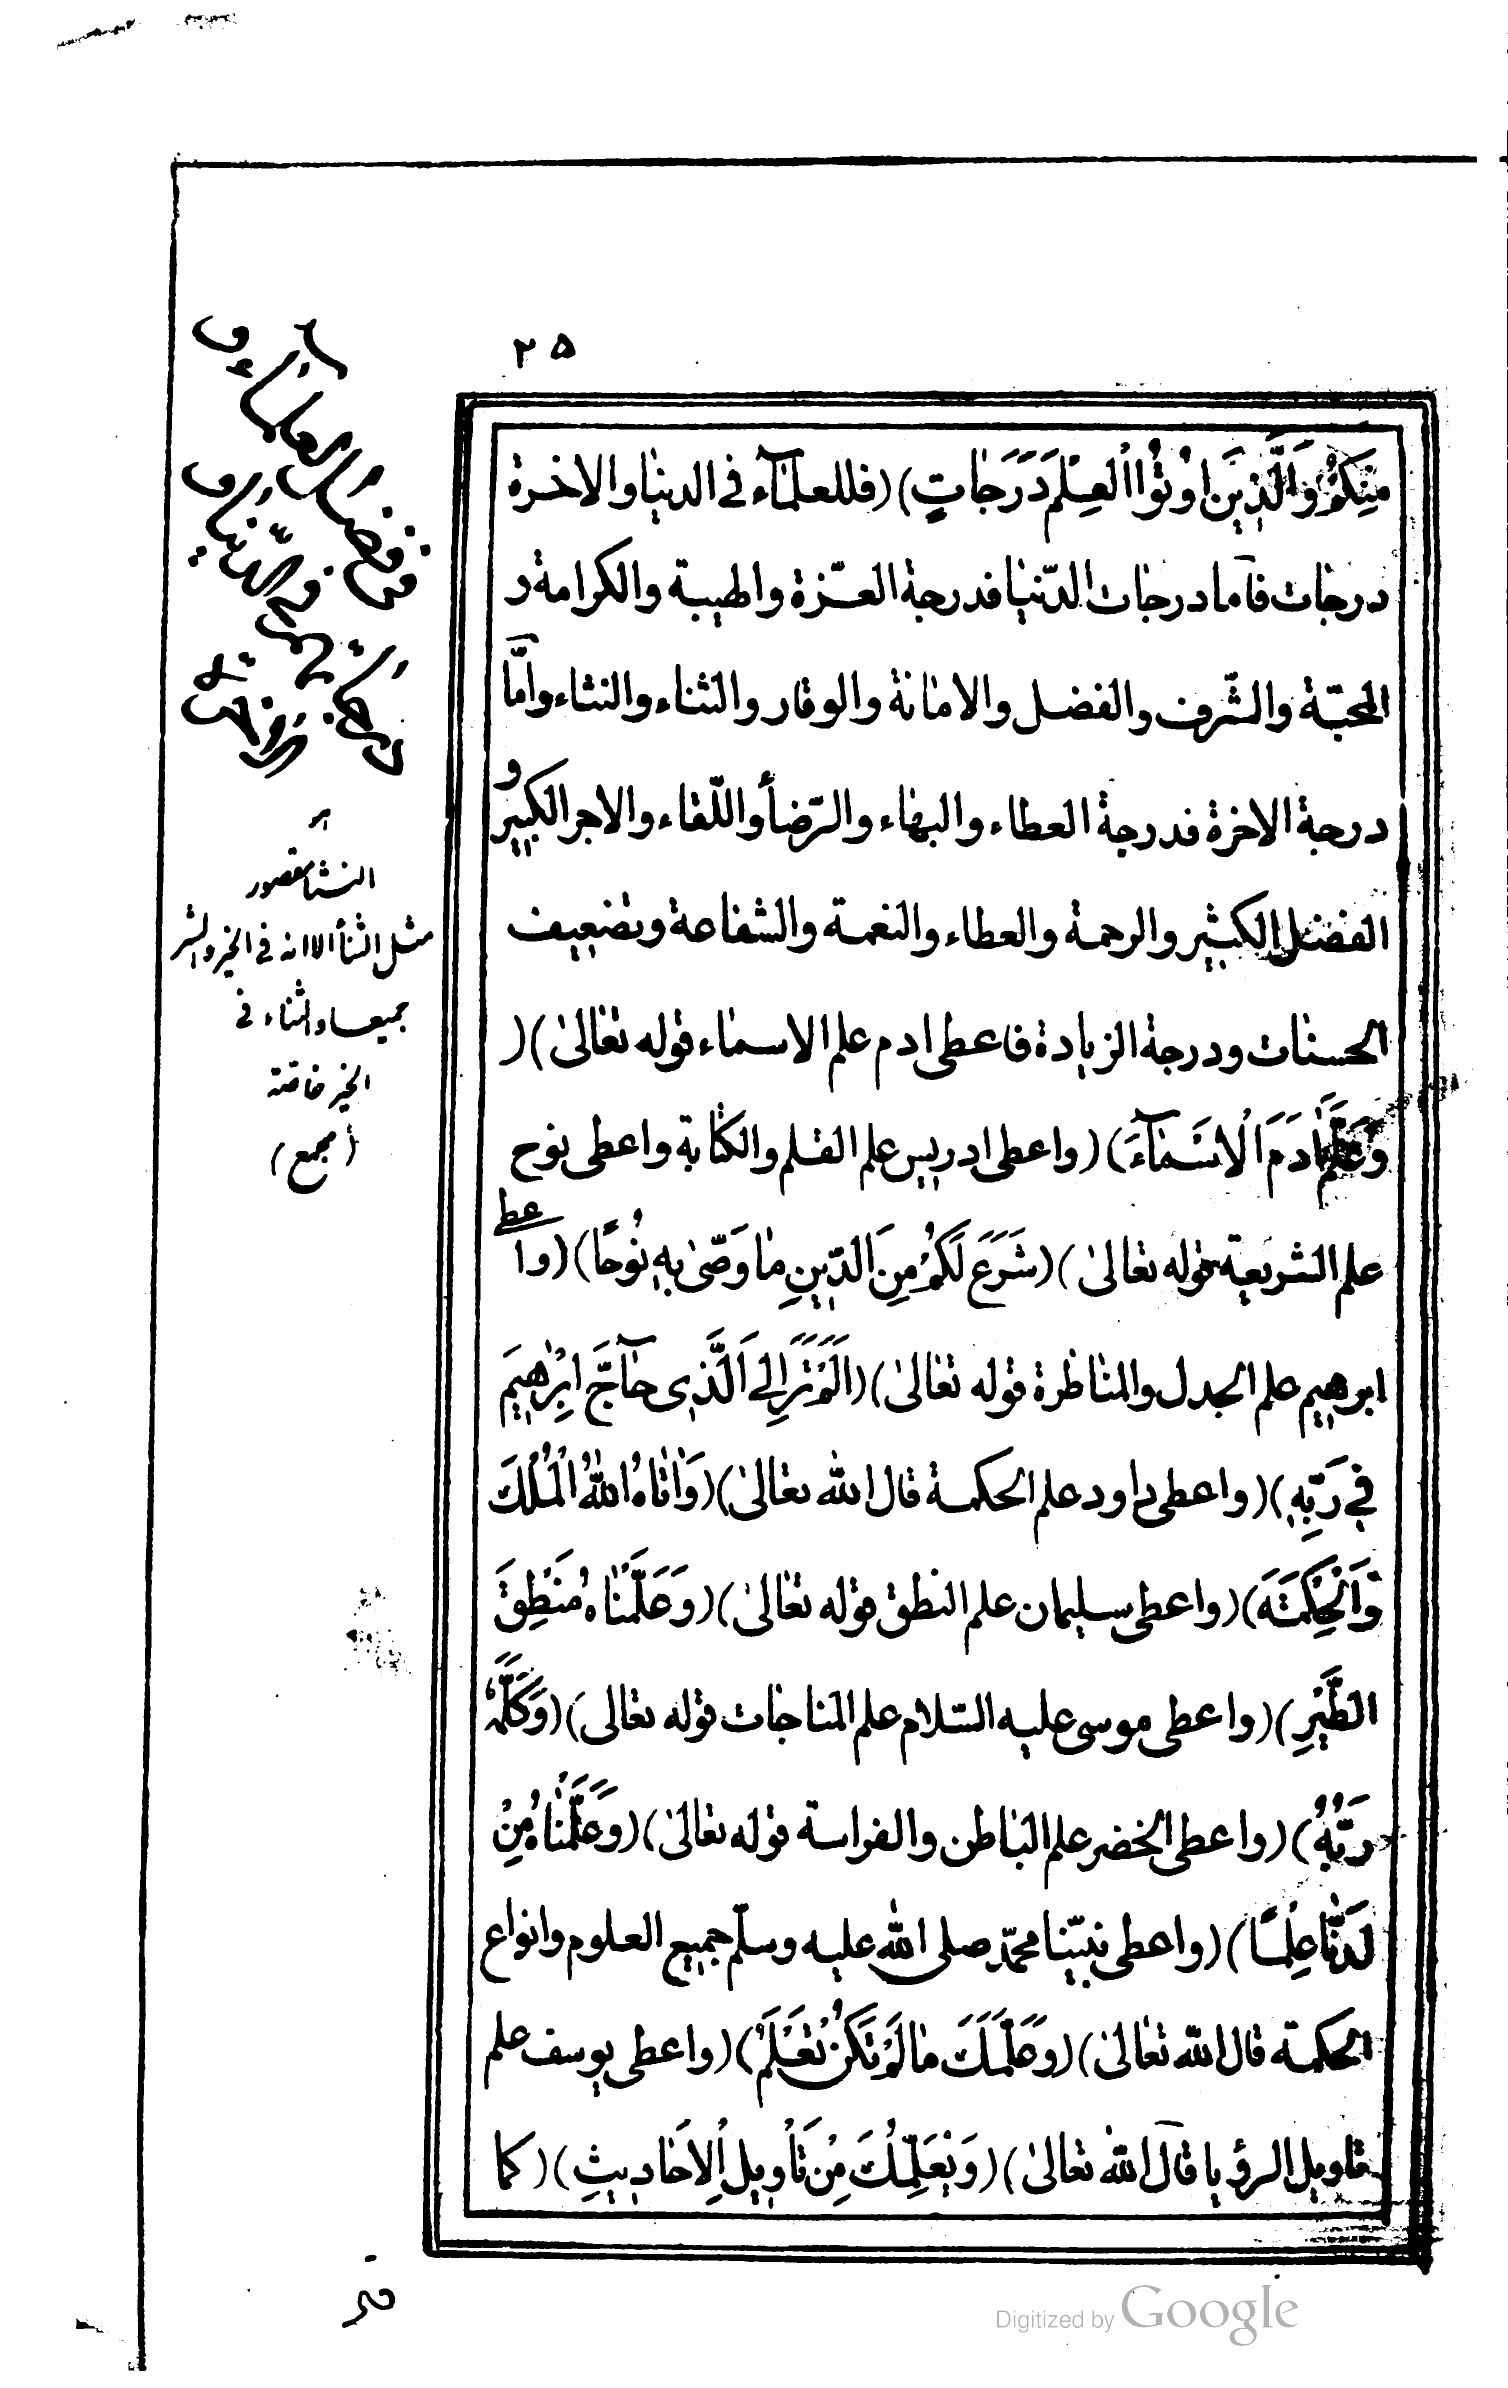 ٢٥
منكم والّذين اوتوا العلم درجات) (فللعلمآء فى الدنيا والاخرة
درجات فآما درجات الدّنيا فدرجة العزّة والهيبة والكرامة د
المحبّة والشّرف والفضل والامانة والوقار والثناء والنثاء وامّا
درجة الاخرة فدرجة العطاء والبهاء والرّضأ واللّقاء والاجر الكبير و
الفضل الكبير والرحمة والعطاء والنعمة والشفاعة وتضعيف
الحسنات ودرجة الزيادة فاعطى ادم علم الاسماء قوله تعالى) (
وَعَلَّمَ ادَمَ الْاَسْمآءَ) (واعطى ادريس علم القلم والكتابة واعطى نوح
علم الشريعة قوله تعالى) (شَرَعَ لَكُمْ مِنَ الدّينِ ما وَصّى بِهِ نُوحًا) (واعطى
ابرهيم علم الجدل والمناظرة قوله تعالى) (اَلَمْ تَرَ اِلَى الَّذى حآجَّ اِبْرهيمَ
فى رَبِّهِ) (واعطى داود علم الحكمة قال الله تعالى) (وَاتاهُ اللّهُ الْمُلْكَ
وَالْحِكْمَةَ) (واعطى سليمان علم النطق قوله تعالى) (وَعَلَّمْناهُ مَنْطِقَ
الطَّيْرِ) (واعطى موسى عليه السّلام علم المناجات قوله تعالى) (وَكَلَّمَهُ
رَبُّهُ) (واعطى الخضر علم الباطن والفراسة قوله تعالى) (وَعَلَّمْناهُ مِنْ
لَدُنّا عِلْمًا) (واعطى نبيّنا محمّد صلى الله عليه وسلّم جميع العلوم وانواع
الحكمة قال اللّه تعالى) (وَعَلَّمَكَ ما لَمْ تَكُنْ تَعْلَمُ) (واعطى يوسف علم
تاويل الرؤيا قال اللّه تعالى) (وَيُعَلِّمُكَ مِنْ تَأْويلِ الاَحاديثِ) (كما
النثا مقصور
مثل الثنأ الا انه فى الخير والشر
جميعا والثناء فى
الخير خاصّة
(مجمع)
Digitized by Google